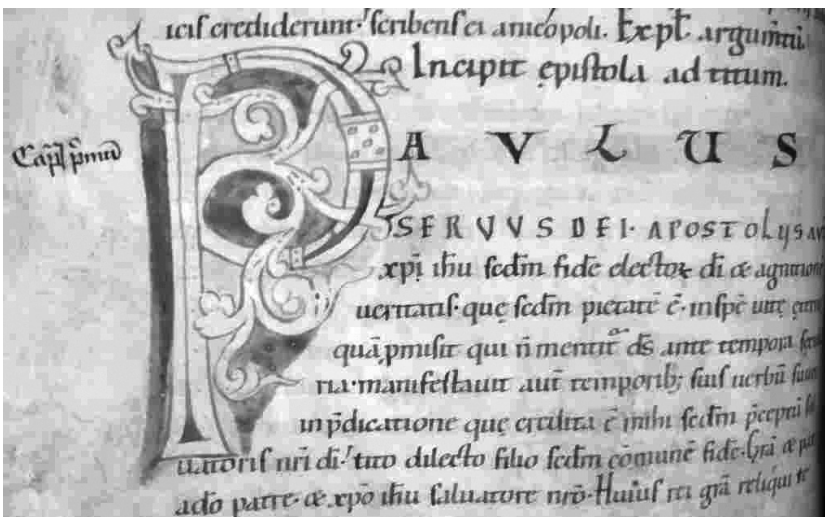 icis crediderunt· scribens ei a nicopoli. Expt̄ argum̄tū.
Incipit ępistola ad titum.
Cap̄l p̄mū
PAVLUS
SERVVS DEI· APOSTOLUS AU
xp̄i ih̄u sed̄m fidē electoꝝ dī & agnitione
ueritatis· quę sed̄m pietatē ē· in spē uitę ętern
quā p̄misit qui n̄ mentit᷒ d̄s ante tempora secu
ria· manifestauit aut̄ temporib; suis uerbū suum
in p̄dicatione quę credita ē mihi sed̄m p̄ceptū sal
uatoris nr̄i dī· tito dilecto filio sed̄m cōmunē fidē· Gr̄a & pax
a dō patre· & xp̄o ih̄u saluatore nr̄o· Huius rei gr̄a reliqui te